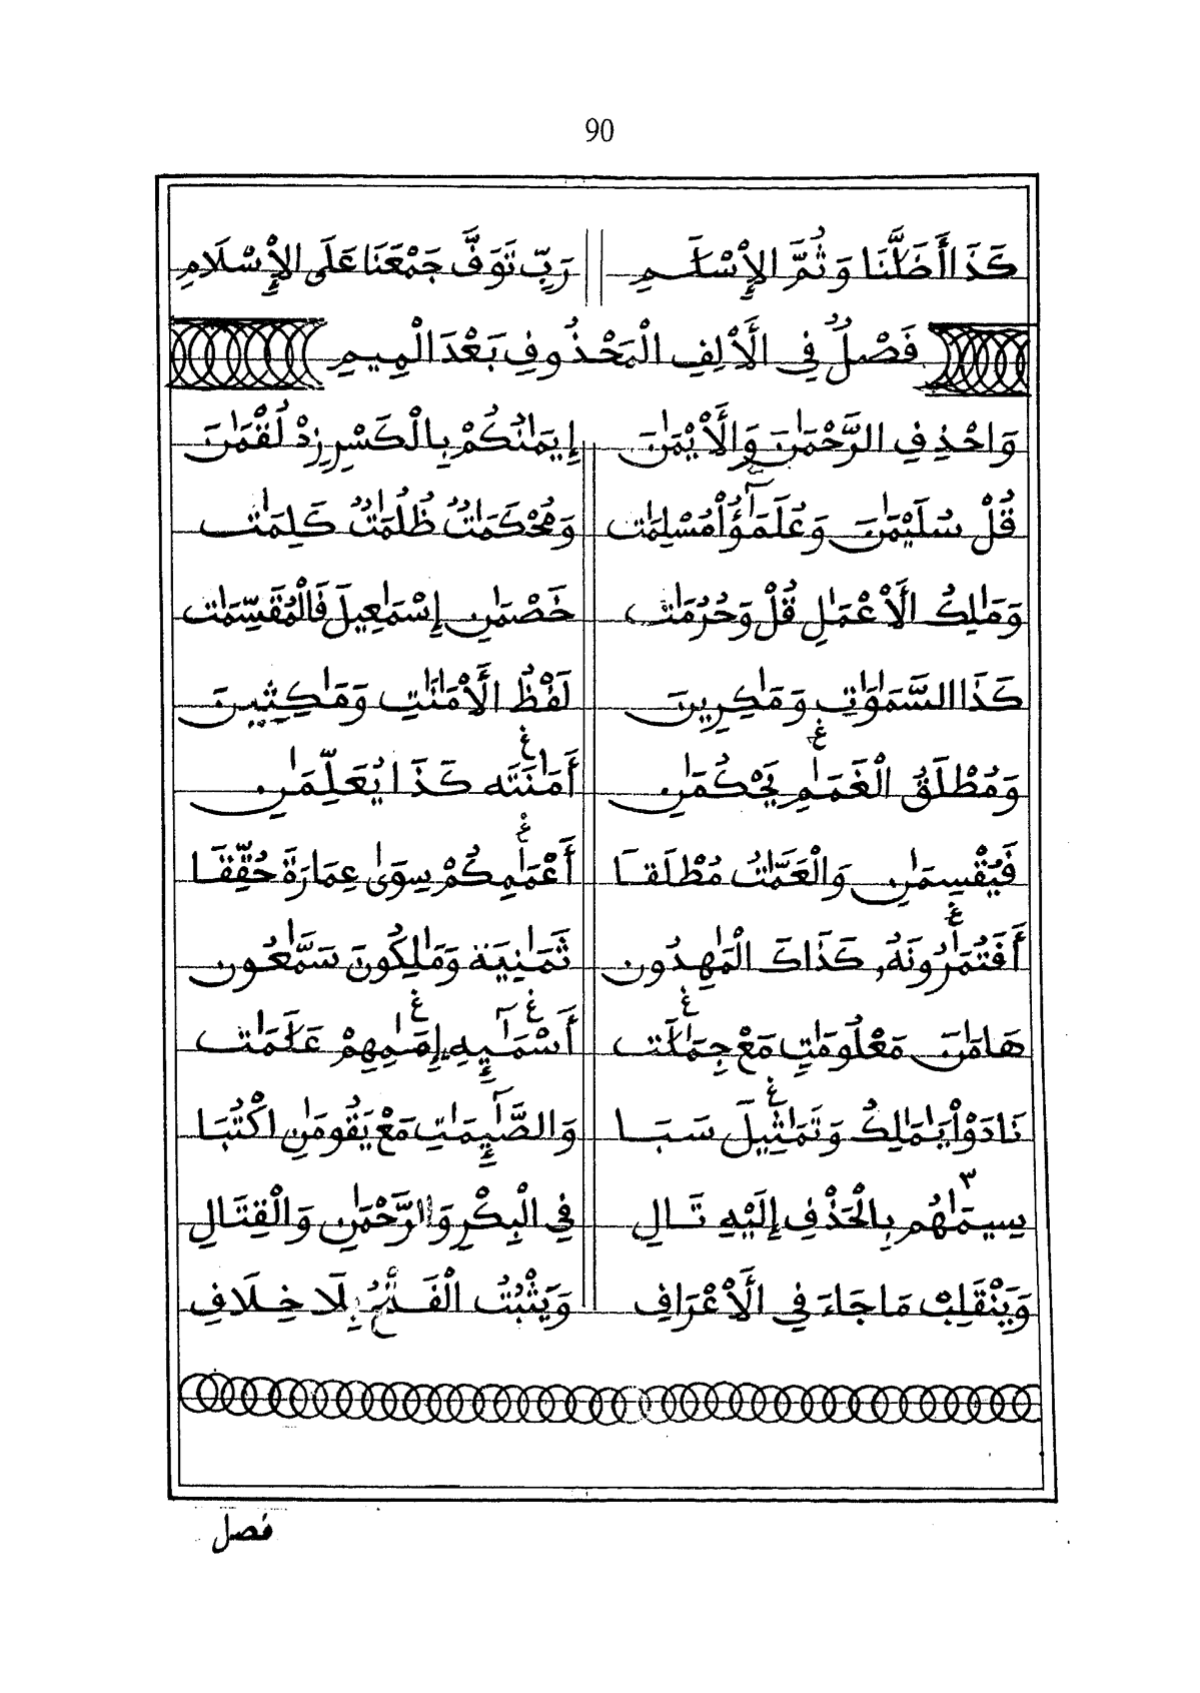 90
كَذَا أَضَلَّنَا وَثُمَّ الإِسْلَٰمِ رَبِّ تَوَفَّ جَمْعَنَا عَلَى الإِسْلَامِ
فَصْلٌ فِي الَأْلِفِ الْمَحْذُوفِ بَعْدَ الْمِيمِ
وَاحْذِفِ الرَّحْمَٰنَ وَالَأْيْمَٰنَ إِيمَٰنُكُمْ بِالْكَسْرِ زِدْ لُقْمَٰنَ
قُلْ سُلَيْمَٰنَ وَعُلَمَٰٓؤُاْ مُسْلِمَٰت وَمُحْكَمَٰتٌ ظُلُمَٰتٌ كَلِمَٰت
وَمَٰلِكُ الَأْعْمَٰلِ قُلْ وَحُرُمَٰت خَصْمَٰنِ إِسْمَٰعِيلَ فَالْمُقَسِّمَٰت
كَذَا السَّمَٰوَٰتِ وَمَٰكِرِينَ لَفْظُ الَأْمَٰنَٰتِ وَمَٰكِثِينَ
وَمُطْلَقُ الْغَمَٰمِ يَحْكُمَٰنِ أَمَٰنَتَه كَذَا يُعَلِّمَٰنِ
فَيُقْسِمَٰنِ وَالْعَمَّٰتُ مُطْلَقَا أَعْمَٰمِكُمْ سِوَىٰ عِمَارَةَ حُقِّقَا
أَفَتُمَٰرُونَهُۥ كَذَاكَ الْمَٰهِدُون ثَمَٰنِيَة وَمَٰلِكُونَ سَمَّٰعُون
هَامَٰنَ مَعْلُومَٰتٍ مَعْ جِمَٰلَٰت أَسْمَٰٓئِهِ إِمَٰمِهِمْ عَلَٰمَٰت
نَادَوْاْ يَٰمَٰلِكُ وَتَمَٰثِيلَ سَبَا وَالصَّٰٓئِمَٰتِ مَعْ يَقُومَٰنِ اكْتُبَا
سِيمَٰهُم بِالْحَذْفِ إِلَيْهِ تَالِ ٣ فِي الْبِكْرِ وَالرَّحْمَٰنِ وَالْقِتَالِ
وَيَنْقَلِبْ مَا جَاءَ فِي الَأْعْرَافِ وَيَثْبُتُ الْفَتْحُ بِلَا خِلَافِ
فصل